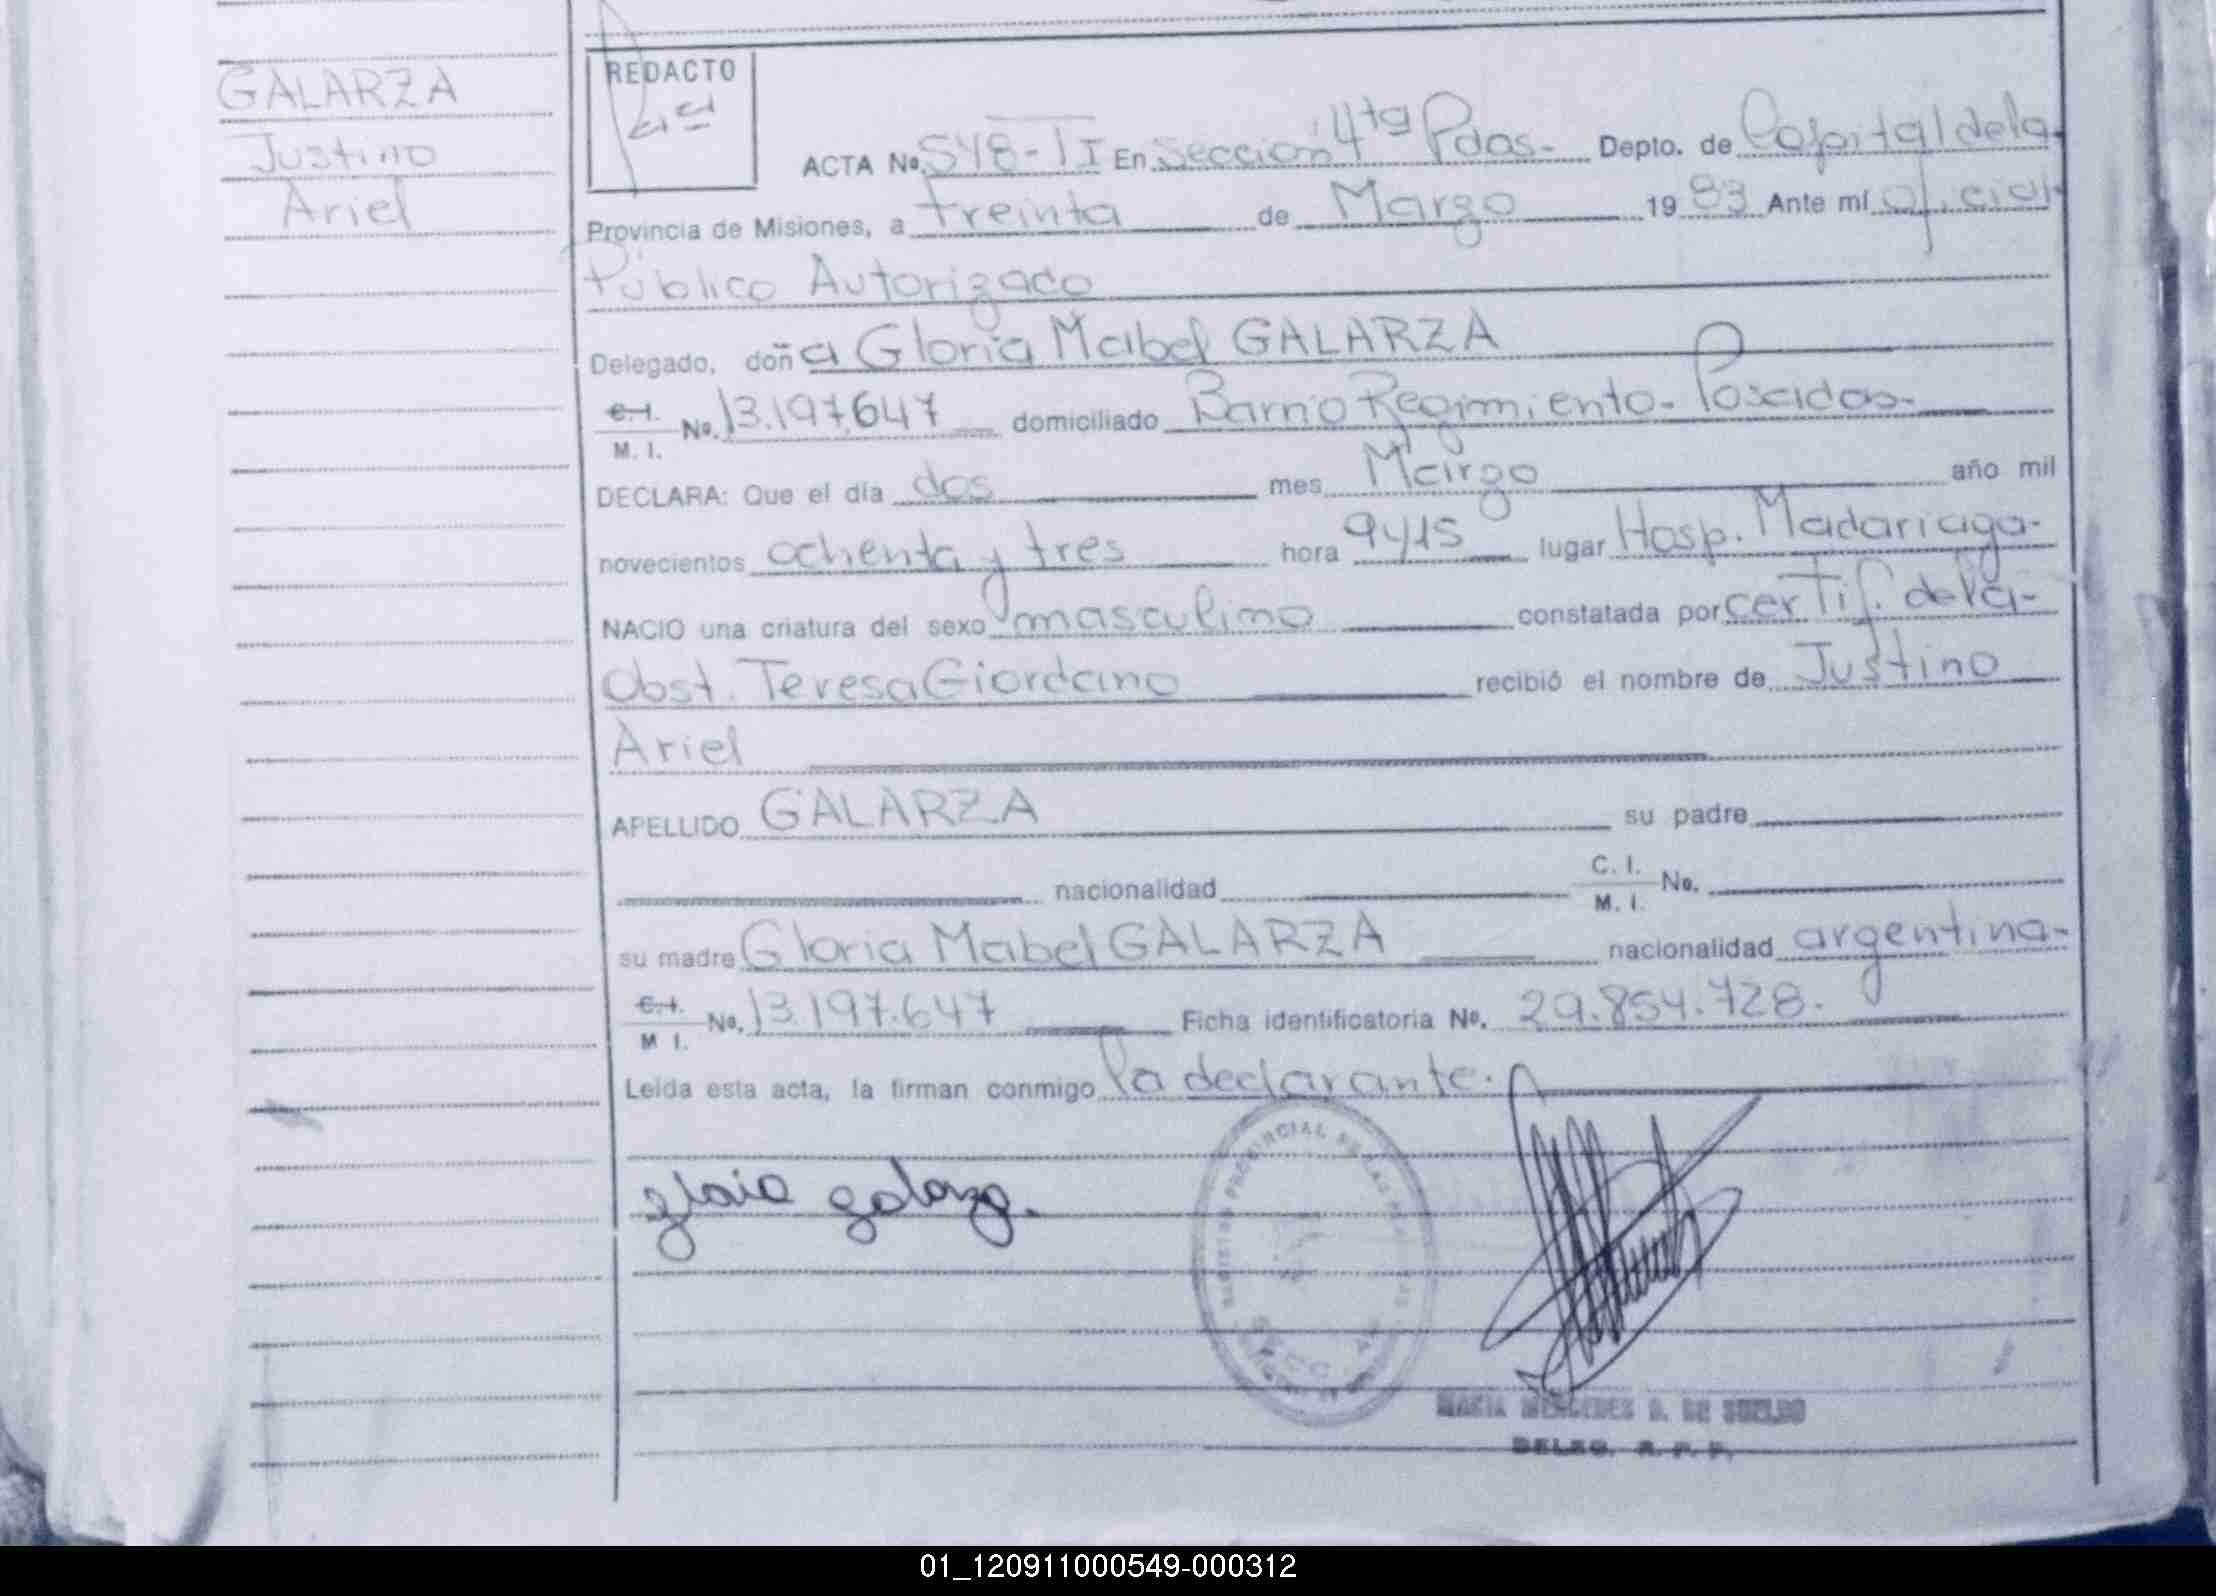 GALARZA
Justino
Ariel
REDACTO
ACTA No. 548-II En Sección 4ta Pdas.- Depto. de Capital de la
Provincia de Misiones, a treinta de Marzo 1983 Ante mí Oficial
Público Autorizado
Delegado, doña Gloria Mabel GALARZA
C.I.
M. I. No. 13.197.647 domiciliado Barrio Regimiento- Posadas-
DECLARA: Que el día dos mes Marzo año mil
novecientos ochenta y tres hora 9y15 lugar Hosp. Madariaga-
NACIO una criatura del sexo masculino constatada por certif. de la-
Obst. Teresa Giordano recibió el nombre de Justino
Ariel
APELLIDO GALARZA su padre
nacionalidad C. I.
M. I. No.
su madre Gloria Mabel GALARZA nacionalidad argentina-
C.I.
M I. No. 13.197.647 Ficha identificatoria No. 29.854.728.
Leída esta acta, la firman conmigo la declarante.
gloria galarza.
REGISTRO PROVINCIAL DE LAS
SECC. 4a
MARIA MERCEDES G. DE SUELDO
DELEG. R. P. P.
01_120911000549-000312